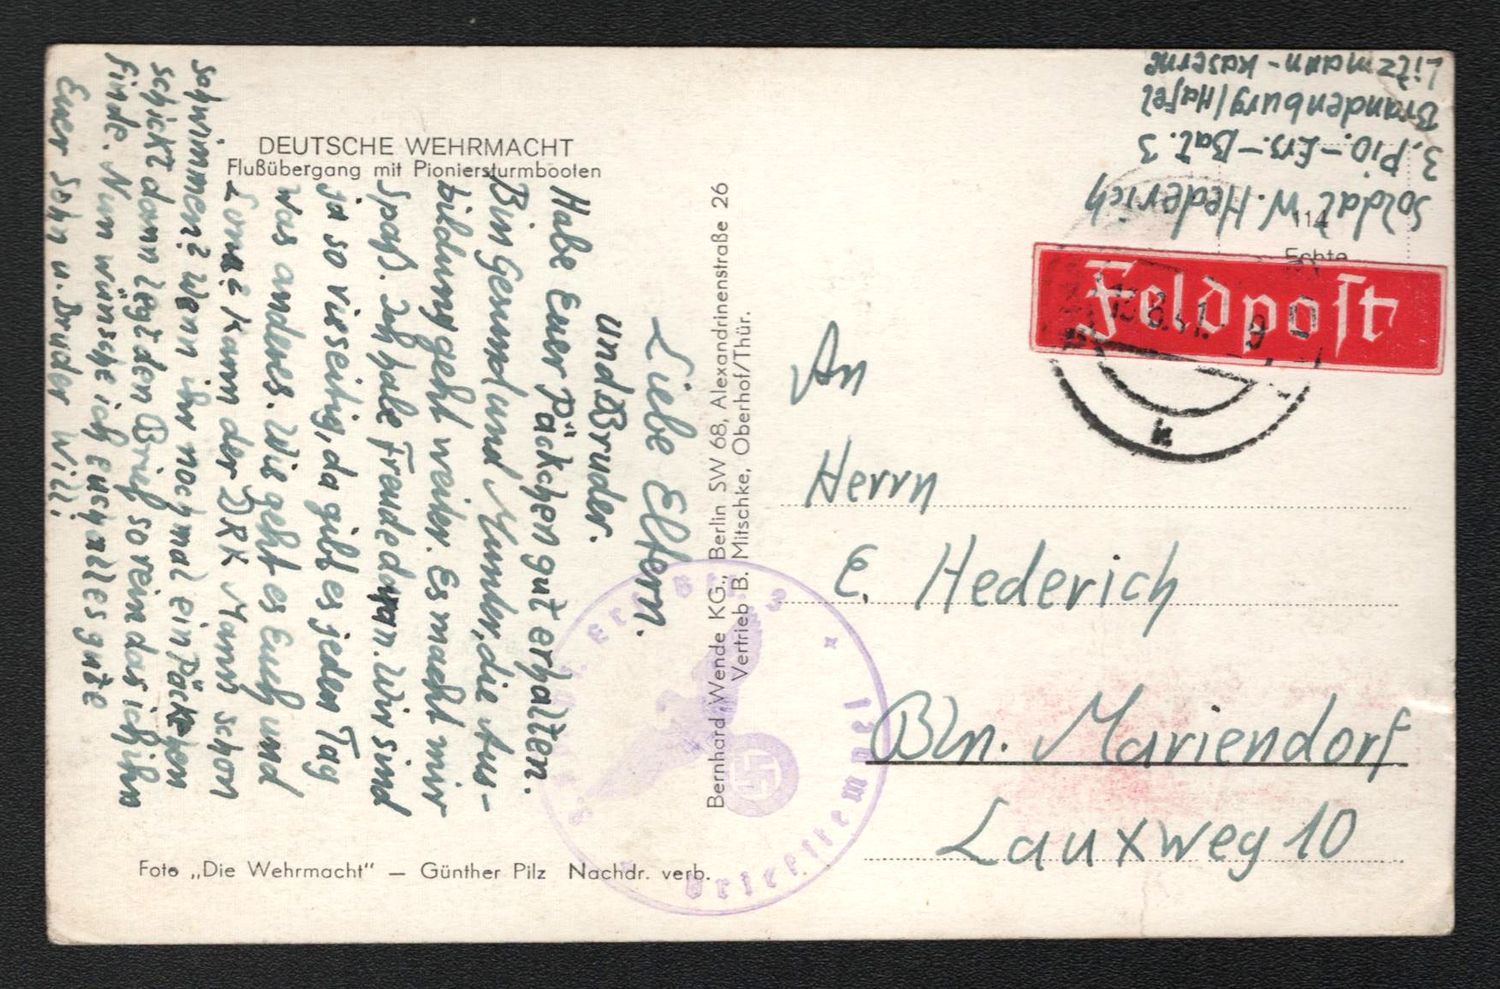 DEUTSCHE WEHRMACHT
Flußübergang mit Pioniersturmbooten
Liebe Eltern.
und Bruder.
Habe Euer Päckchen gut erhalten.
Bin Gesund und Munter, die Aus-
bildung geht weiter. Es macht mir
Spaß. Ich habe Freude dran. Wir sind
ja so vielseitig, da gibt es jeden Tag
was anderes. Wie geht es Euch und
kann der DRK Mann schon
schwimmen? Wenn ihr nochmal ein Päckchen
schickt dann legt den Brief so rein das ich ihn
finde. Nun wünsche ich euch alles gute
Euer Sohn u. Bruder Willi
Foto „Die Wehrmacht" — Günther Pilz Nachdr. verb.
Bernhard Wende KG., Berlin SW 68, Alexandrinenstraße 26
Vertrieb B. Mitschke, Oberhof/Thür.
Soldat W. Hederich
3. Pio.-Ers.-Bat. 3
Brandenburg/Hafel
Litzmann-Kaserne
114
Echte
Feldpost
41
k
An
Herrn
E. Hederich
Bln. Mariendorf
Lauxweg 10
Briefstempel